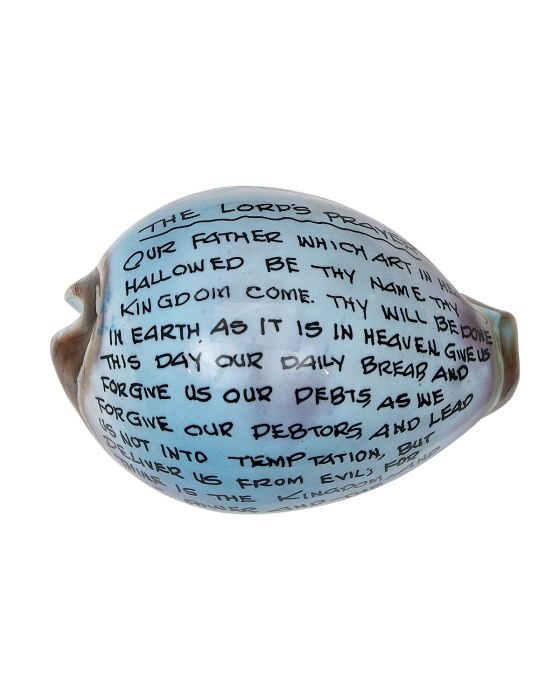 THE LORD'S PRAYER
OUR FATHER WHICH ART IN
HALLOWED BE THY NAME THY
KINGDOM COME. THY WILL BE DONE
IN EARTH AS IT IS IN HEAVEN. GIVE US
THIS DAY OUR DAILY BREAD, AND
FORGIVE US OUR DEBTS, AS WE
FORGIVE OUR DEBTORS, AND LEAD
US NOT INTO TEMPTATION, BUT
DELIVER US FROM EVIL; FOR
THINE IS THE KINGDOM AND
POWER AND